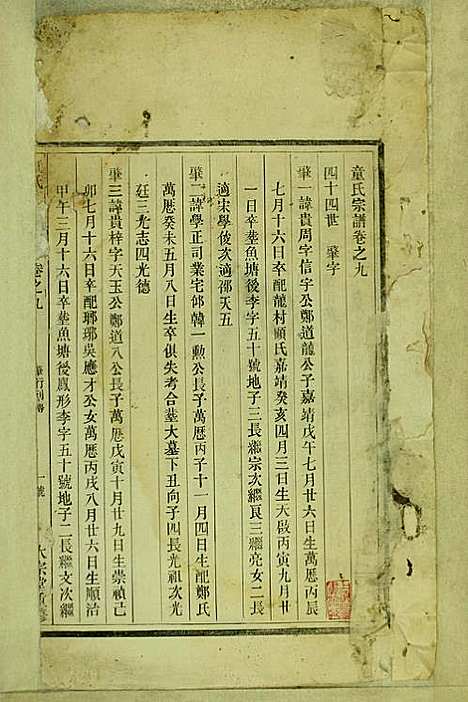 童氏宗譜卷之九
四十四世 肇字
肇一諱貴周字信字公鄭道龍公子嘉靖戊午七月廿六日生萬厯丙辰
七月十六日卒配龍村頓氏嘉靖癸亥四月三日生天啟丙寅九月廿
一日卒塟魚塘後李字五十號地子三長繼宗次繼良三繼亮女二長
適宋學俊次適邵天五
肇二諱學正司業宅邨韓一勲公長子萬厯丙子十一月四日生配鄭氏
萬厯癸未五月八日生卒俱失考合塟大墓下丑向子四長光祖次光
廷三光志四光德
肇三諱貴梓字天玉公鄭道八公長子萬厯戊寅十月廿九日生崇禎己
卯七月十六日卒配瑯琊吳應才公女萬厯丙戌八月廿六日生順治
甲午二月十六日卒塟魚塘後鳳形李字五十號地子二長繼文次繼
卷之九 肇行列傳 一號 大宗堂